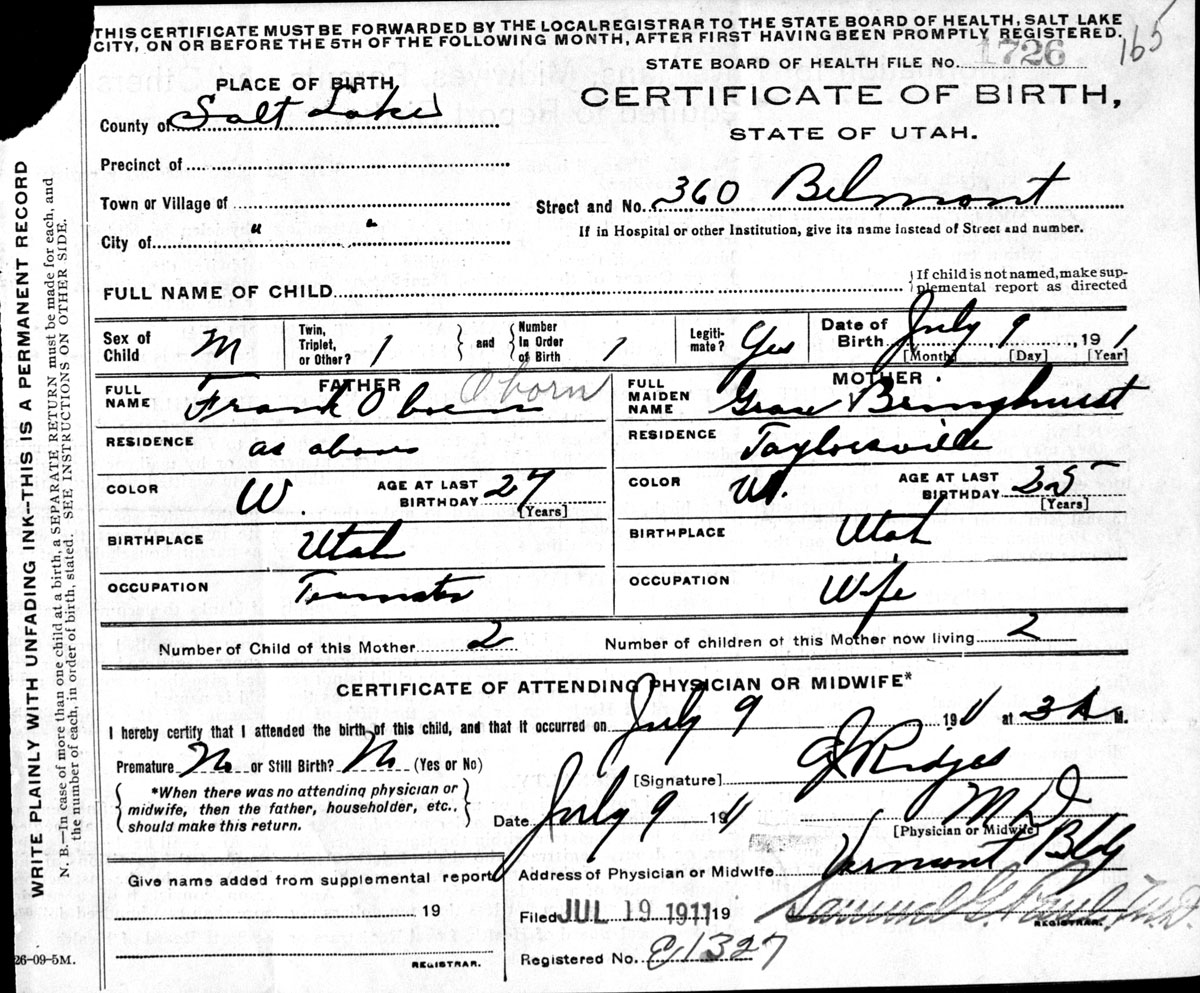 THIS CERTIFICATE MUST BE FORWARDED BY THE LOCAL REGISTRAR TO THE STATE BOARD OF HEALTH, SALT LAKE
CITY, ON OR BEFORE THE 5TH OF THE FOLLOWING MONTH, AFTER FIRST HAVING BEEN PROMPTLY REGISTERED.
165
STATE BOARD OF HEALTH FILE NO. 1726
PLACE OF BIRTH
CERTIFICATE OF BIRTH,
County of Salt Lake
STATE OF UTAH.
Precinct of
Town or Village of
Street and No. 360 Belmont
City of " "
If in Hospital or other Institution, give its name instead of Street and number.
FULL NAME OF CHILD
If child is not named, make sup-
plemental report as directed
Sex of Child M
Twin, Triplet, or Other? 1
and
Number In Order of Birth 1
Legiti-mate? Yes
Date of Birth July 9, 1911
[Month] [Day] [Year]
FATHER
FULL NAME Frank Oborn Oborn
MOTHER
FULL MAIDEN NAME Grace Bringhurst
RESIDENCE as above
RESIDENCE Taylorsville
COLOR W. AGE AT LAST BIRTHDAY 27 [Years]
COLOR W. AGE AT LAST BIRTHDAY 25 [Years]
BIRTHPLACE Utah
BIRTHPLACE Utah
OCCUPATION Teamster
OCCUPATION Wife
Number of Child of this Mother 2
Number of children of this Mother now living 2
CERTIFICATE OF ATTENDING PHYSICIAN OR MIDWIFE*
I hereby certify that I attended the birth of this child, and that it occurred on July 9 1911 at 3 A M.
Premature No or Still Birth? No (Yes or No)
[Signature] Ridges
*When there was no attending physician or
midwife, then the father, householder, etc.,
should make this return.
Date July 9 1911
M D
[Physician or Midwife]
Give name added from supplemental report
Address of Physician or Midwife Vermont Bldg
19
Filed JUL 19 1911 19
Samuel G. Paul, M.D.
REGISTRAR.
REGISTRAR.
Registered No. E1327
26-09-5M.
WRITE PLAINLY WITH UNFADING INK—THIS IS A PERMANENT RECORD
N. B.—In case of more than one child at a birth, a SEPARATE RETURN must be made for each, and
the number of each, in order of birth, stated. SEE INSTRUCTIONS ON OTHER SIDE.